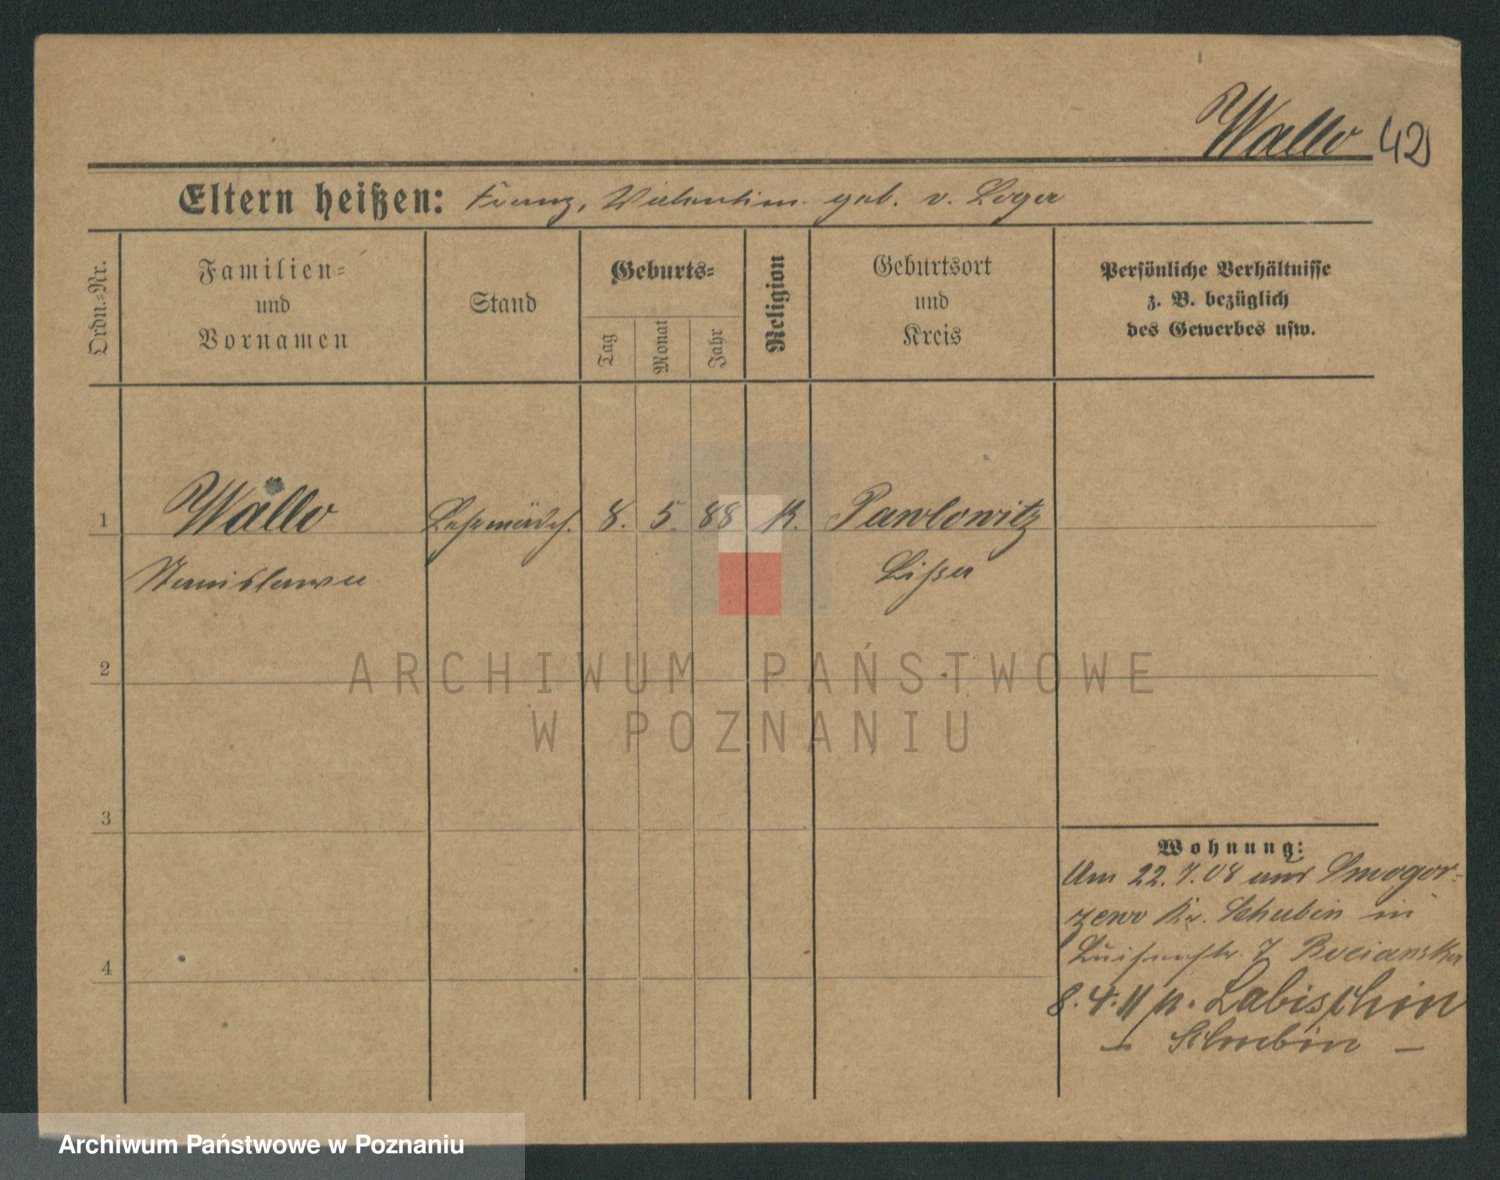 Wallo 42
Eltern heißen: Franz, Valentin geb. v. Loga
Ordn.-Nr.
Familien- und Vornamen
Stand
Geburts-
Tag Monat Jahr
Religion
Geburtsort und Kreis
Persönliche Verhältnisse
z. B. bezüglich
des Gewerbes usw.
1 Wallo Lehrmädch. 8. 5. 88 K. Pawlowitz
Stanislawa Lissa
2
ARCHIWUM PAŃSTWOWE
W POZNANIU
3
Wohnung:
Am 22.7.08 aus Smogor-
zewo Kr. Schubin in
Luisenstr. 7 Bocianska
4
8.4.11 n. Labischin
— Schubin —
Archiwum Państwowe w Poznaniu